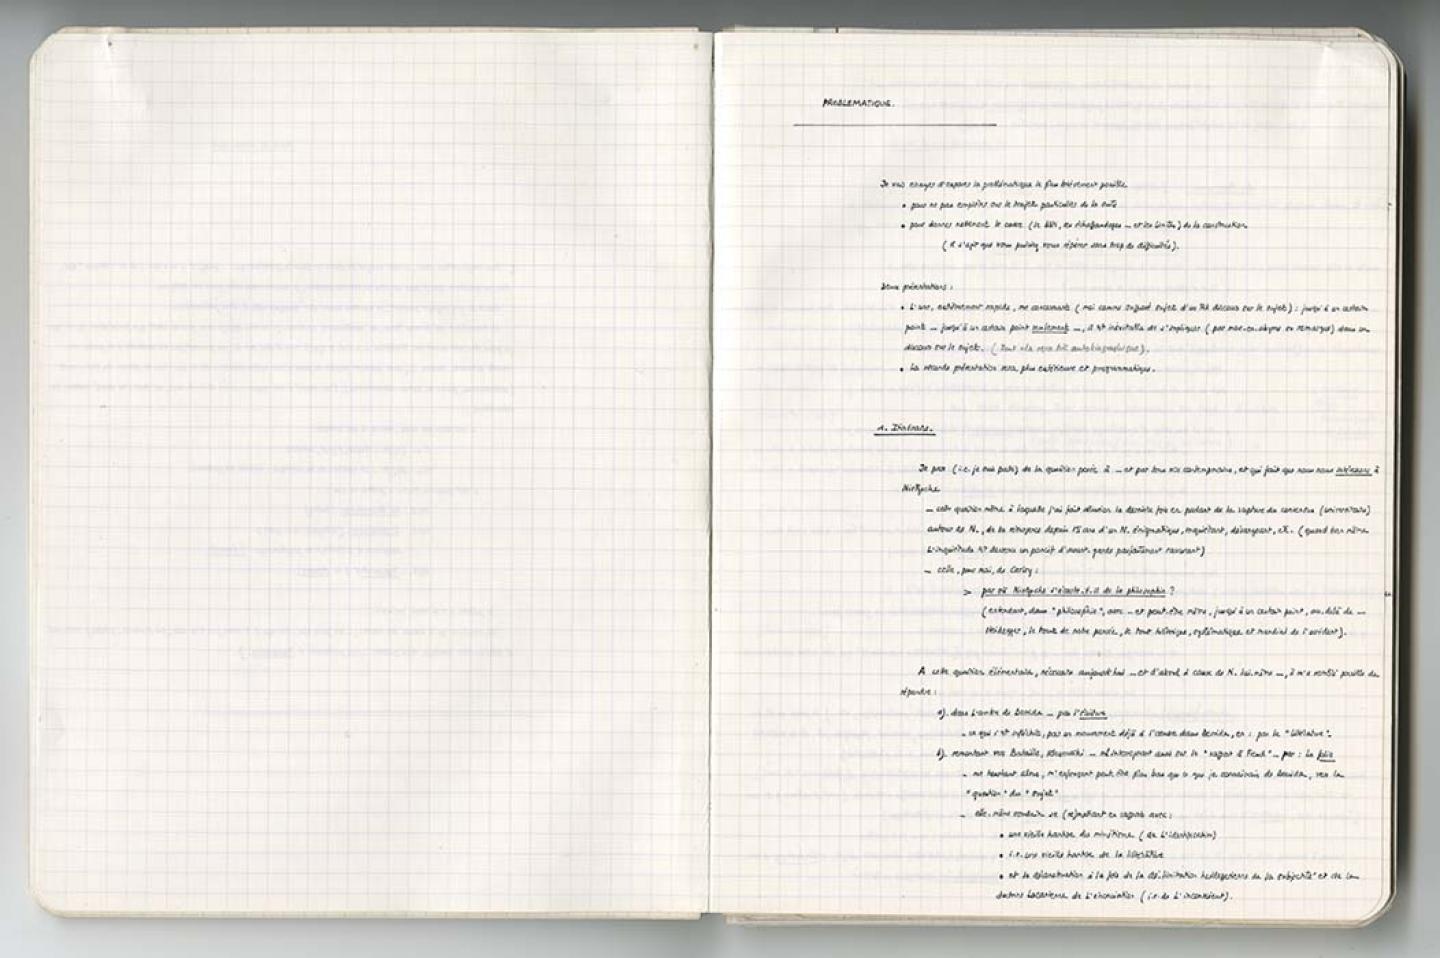 PROBLEMATIQUE.
Je vais essayer d'exposer la problématique le plus brièvement possible
• pour ne pas empiéter sur le trajet particulier de la suite
• pour donner nettement le cadre (le bâti, les échafaudages — et les limites) de la construction
(il s'agit que vous puissiez vous repérer sans trop de difficultés).
Deux présentations :
• L'une, extrêmement rapide, me concernant (moi comme supposé sujet d'un tel discours sur le sujet) : jusqu'à un certain
point — jusqu'à un certain point seulement —, il est inévitable de s'impliquer (par mise-en-abyme ou remarque) dans un
discours sur le sujet. (Tout cela sera très autobiographique).
• La seconde présentation sera plus extérieure et programmatique.
1.
Je pars (i.e. je suis parti) de la question posée à — et par tous nos contemporains, et qui fait que nous nous intéressons à
Nietzsche
— cette question même à laquelle j'ai fait allusion la dernière fois en parlant de la rupture du consensus (universitaire)
autour de N., de la depuis 15 ans d'un N. énigmatique, inquiétant, dérangeant, etc. (quand bien même
L'inquiétude est devenue un poncif d'avant-garde parfaitement rassurant)
— celle, pour moi, de Cerisy :
> par où Nietzsche s'écarte-t-il de la philosophie ?
(entendant, dans "philosophie", avec — et peut-être même, jusqu'à un certain point, au-delà de —
Heidegger, le tout de notre pensée, le tout historique, systématique et mondial de l'occident).
A cette question élémentaire, nécessaire aujourd'hui — et d'abord à cause de N. lui-même —, il m'a semblé possible de
répondre :
a). dans l'ombre de Derrida — par l'écriture
— ce qui s'est infléchi, par un mouvement déjà à l'oeuvre dans Derrida, en : par la "littérature".
b). remontant vers Bataille, Klossowski — m'interrogeant aussi sur le "rapport à Freud" — par : la folie
— me heurtant alors, m'enfonçant peut-être plus bas que ce que je connaissais de Derrida, vers la
"question" du "sujet"
— elle-même venant se (re)mettre en rapport avec :
• une vieille hantise du mimétisme (de l'identification)
• i.e. une vieille hantise de la littérature
• et la déconstruction à la fois de la délimitation heideggerienne de la subjectité et de la
lacanienne de l'énonciation (i.e. de l'inconscient).